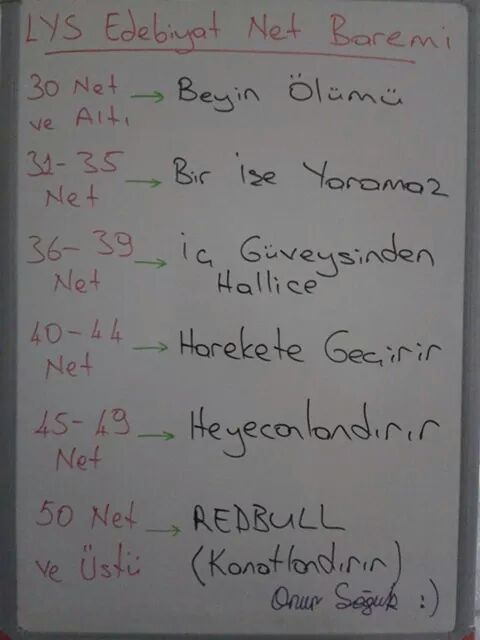 LYS Edebiyat Net Baremi
30 Net ve Altı → Beyin Ölümü
31-35 Net → Bir İşe Yaramaz
36-39 Net → İç Güveysinden Hallice
40-44 Net → Harekete Geçirir
45-49 Net → Heyecanlandırır
50 Net ve Üstü → REDBULL (Kanatlandırır)
Onur Soğuk :)